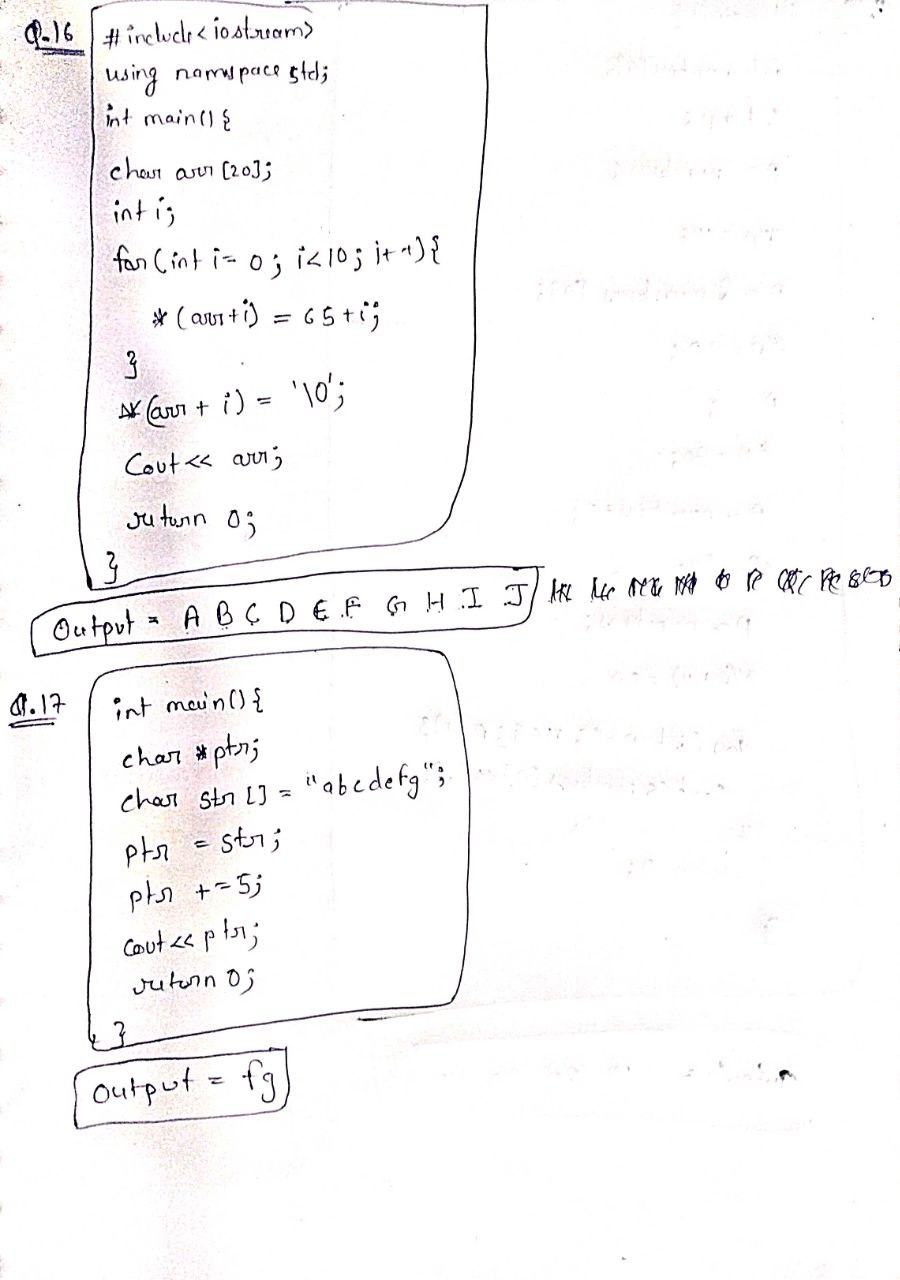 Q.16
#include<iostream>
using namspace std;
int main() {
char arr [20];
int i;
for (int i= 0 ; i<10 ; i++) {
*(arr+i) = 65+i;
}
*(arr + i) = '\0';
Cout<< arr;
return 0;
}
Output = A B C D E F G H I J
Q.17
int main() {
char *ptr;
char str [] = "abcdefg";
ptr = str;
ptr +=5;
Cout<< ptr;
return 0;
}
Output = fg